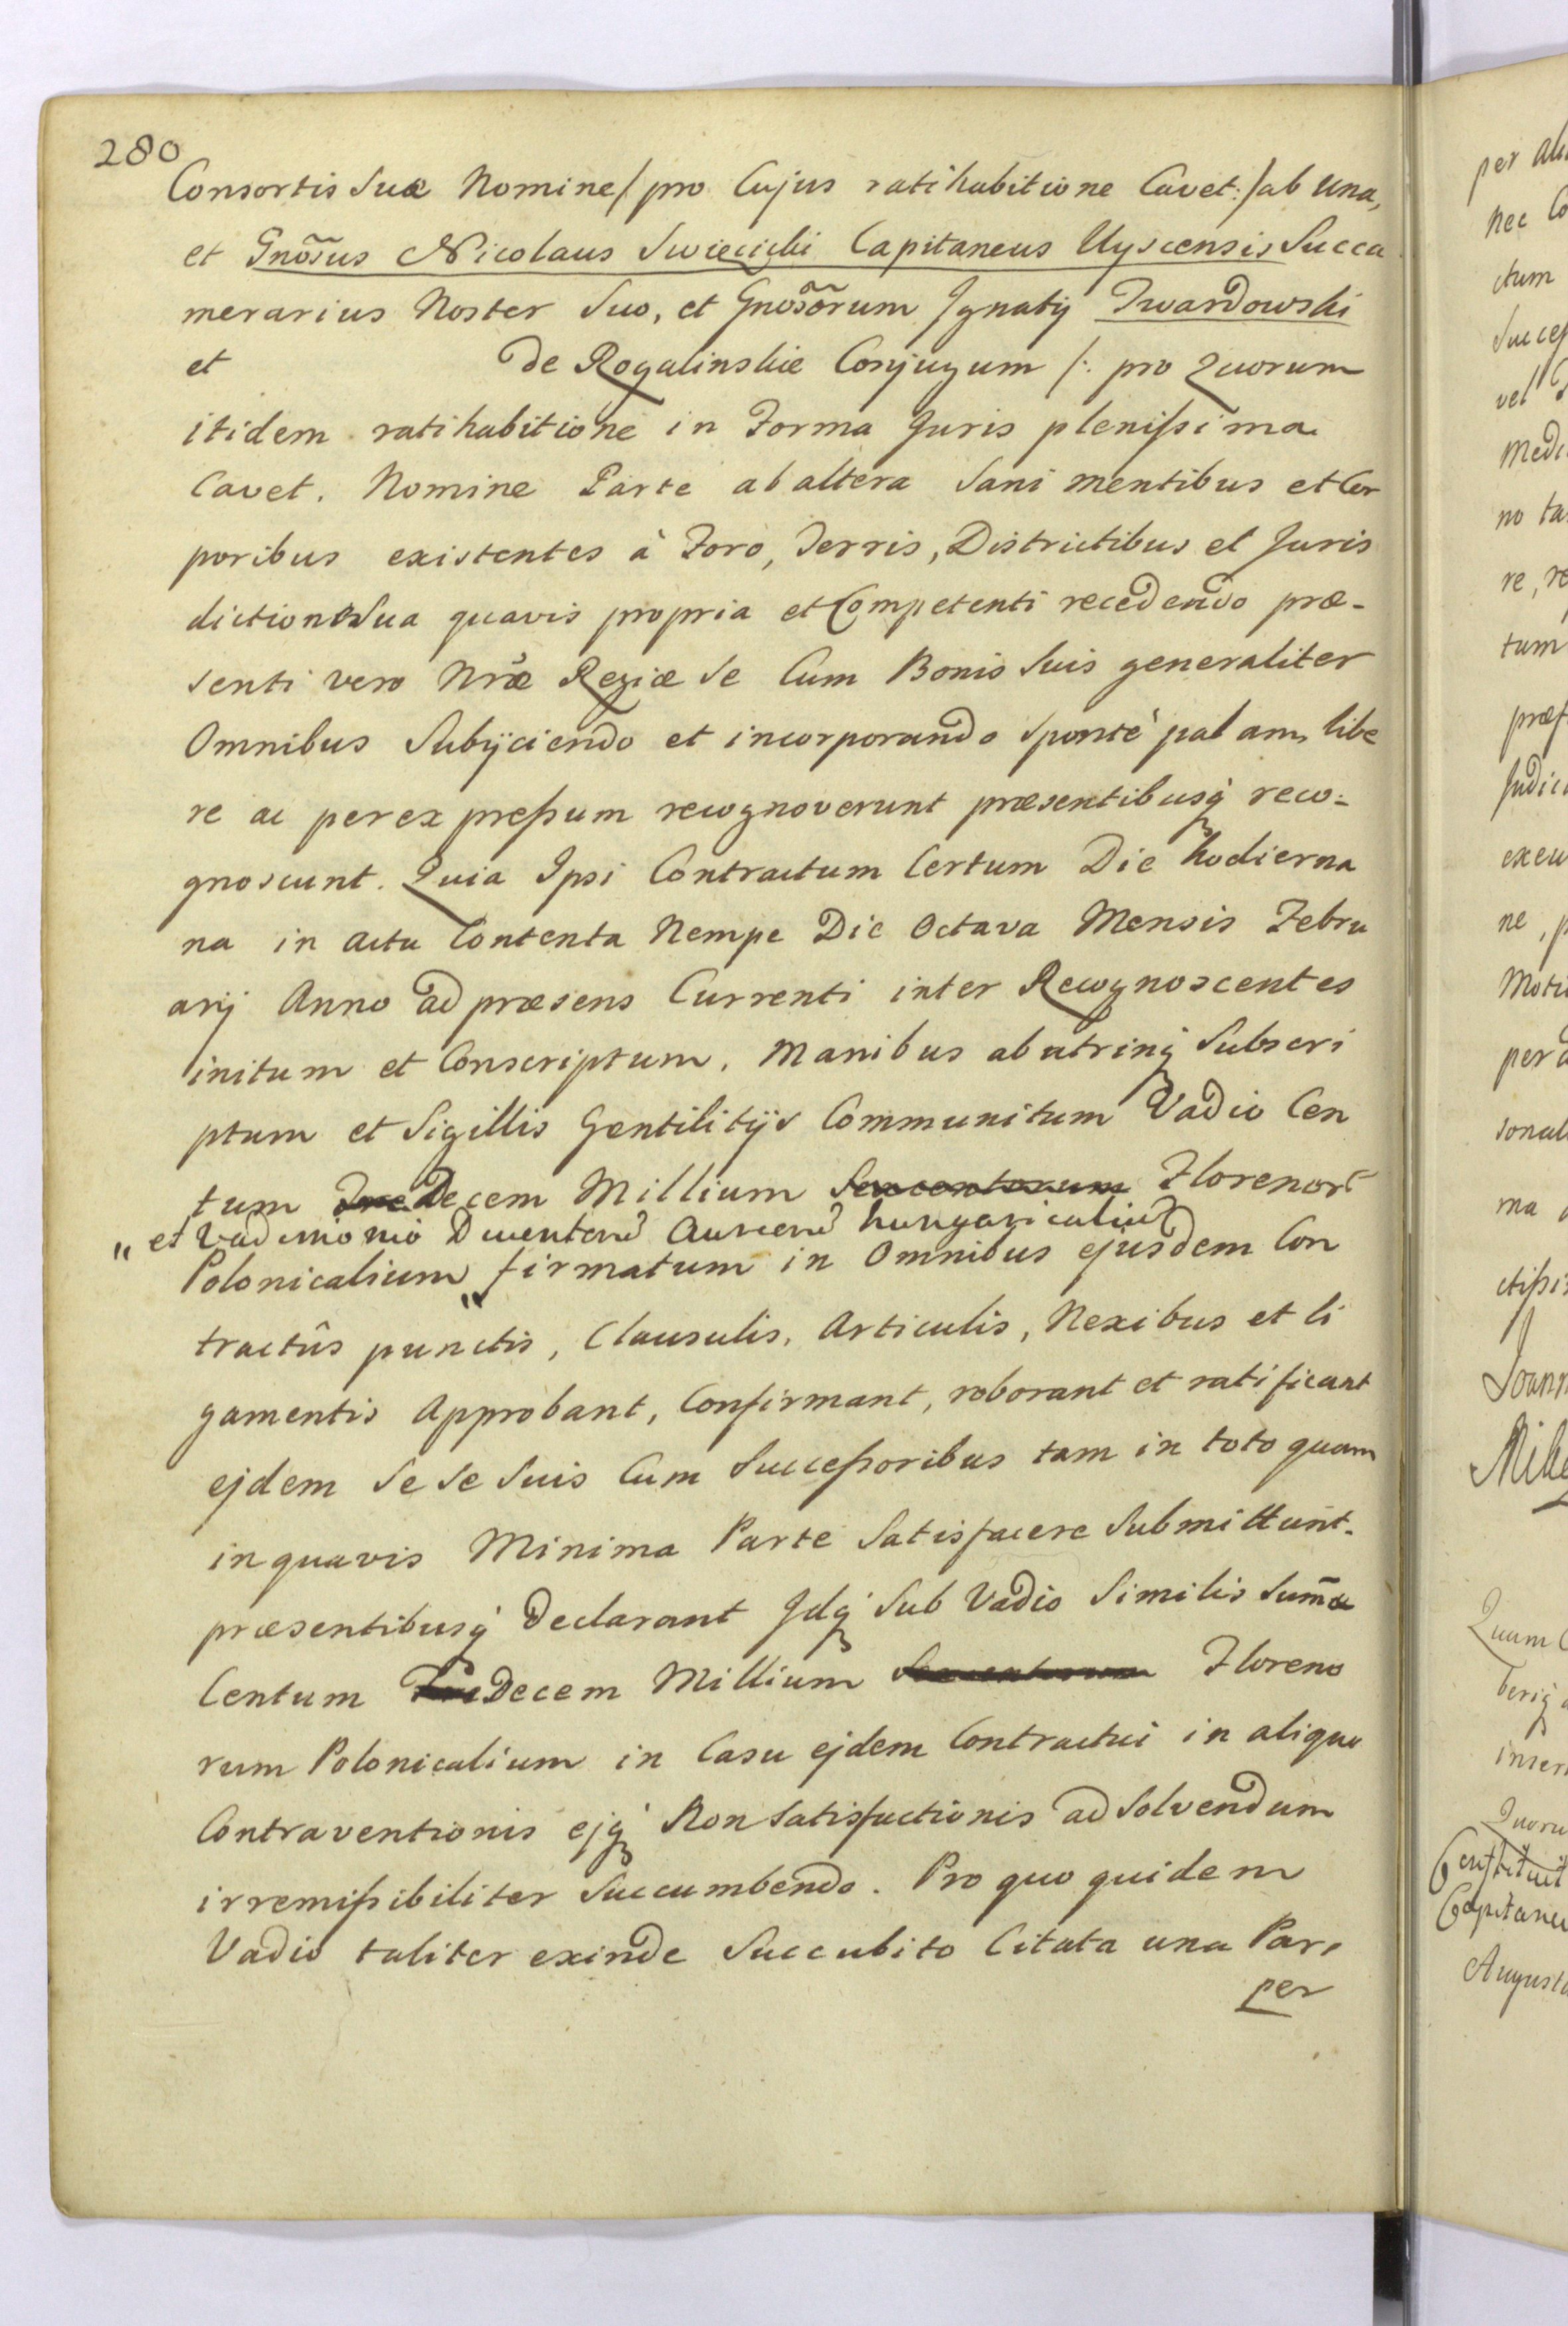 280
Consortis Suæ Nomine /: pro Cujus ratihabitione Cavet :/ ab una,
et Gnõsus Nicolaus Swiecicki Capitaneus Uyscensis Succa
merarius Noster Suo, et Gnõsõrum Ignatij Twardowski
et de Rogalinskie Conjugum /: pro Quorum
itidem ratihabitione in Forma Juris plenissima
Cavet. Nomine Parte ab altera Sani mentibus et Cor
poribus existentes à Foro, Terris, Districtibus et Juris
dictione Sua quavis propria et Competenti recedendo præ-
senti vero Nræ Regiæ Se Cum Bonis Suis generaliter
Omnibus Subijciendo et incorporando Sponte palam, libe
re ac per expressum recognoverunt præsentibusq́ reco-
gnoscunt. Quia Ipsi Contractum Certum Die hodierna
na in actu Contenta Nempe Die Octava Mensis Febru
arij Anno ad præsens Currenti inter Recognoscentes
initum et Conscriptum, Manibus ab utrinq́ Subscri
ptum et Sigillis Gentilitijs Communitum Vadio Cen
tum Tre Decem Millium Sexcentorum Florenor
„ et Vadimonio Ducentorũ Aureorũ hungaricaliũ
Polonicalium „ firmatum in Omnibus ejusdem Con
tractûs punctis, Clausulis, Articulis, Nexibus et li
gamentis Approbant, Confirmant, roborant et ratificant
ejdem Se Se Suis Cum Successoribus tam in toto quam
in quavis Minima Parte Satisfacere Submittunt.
præsentibusq́ Declarant Idq́ Sub Vadio Similis Sum̃æ
Centum Tre Decem Millium Sexcentorum Floreno
rum Polonicalium in Casu ejdem Contractui in aliquo
Contraventionis ejq́ Non Satisfactionis ad Solvendum
irremissibiliter Succumbendo. Pro quo quidem
Vadio taliter exinde Succubito Citata una Pars
per